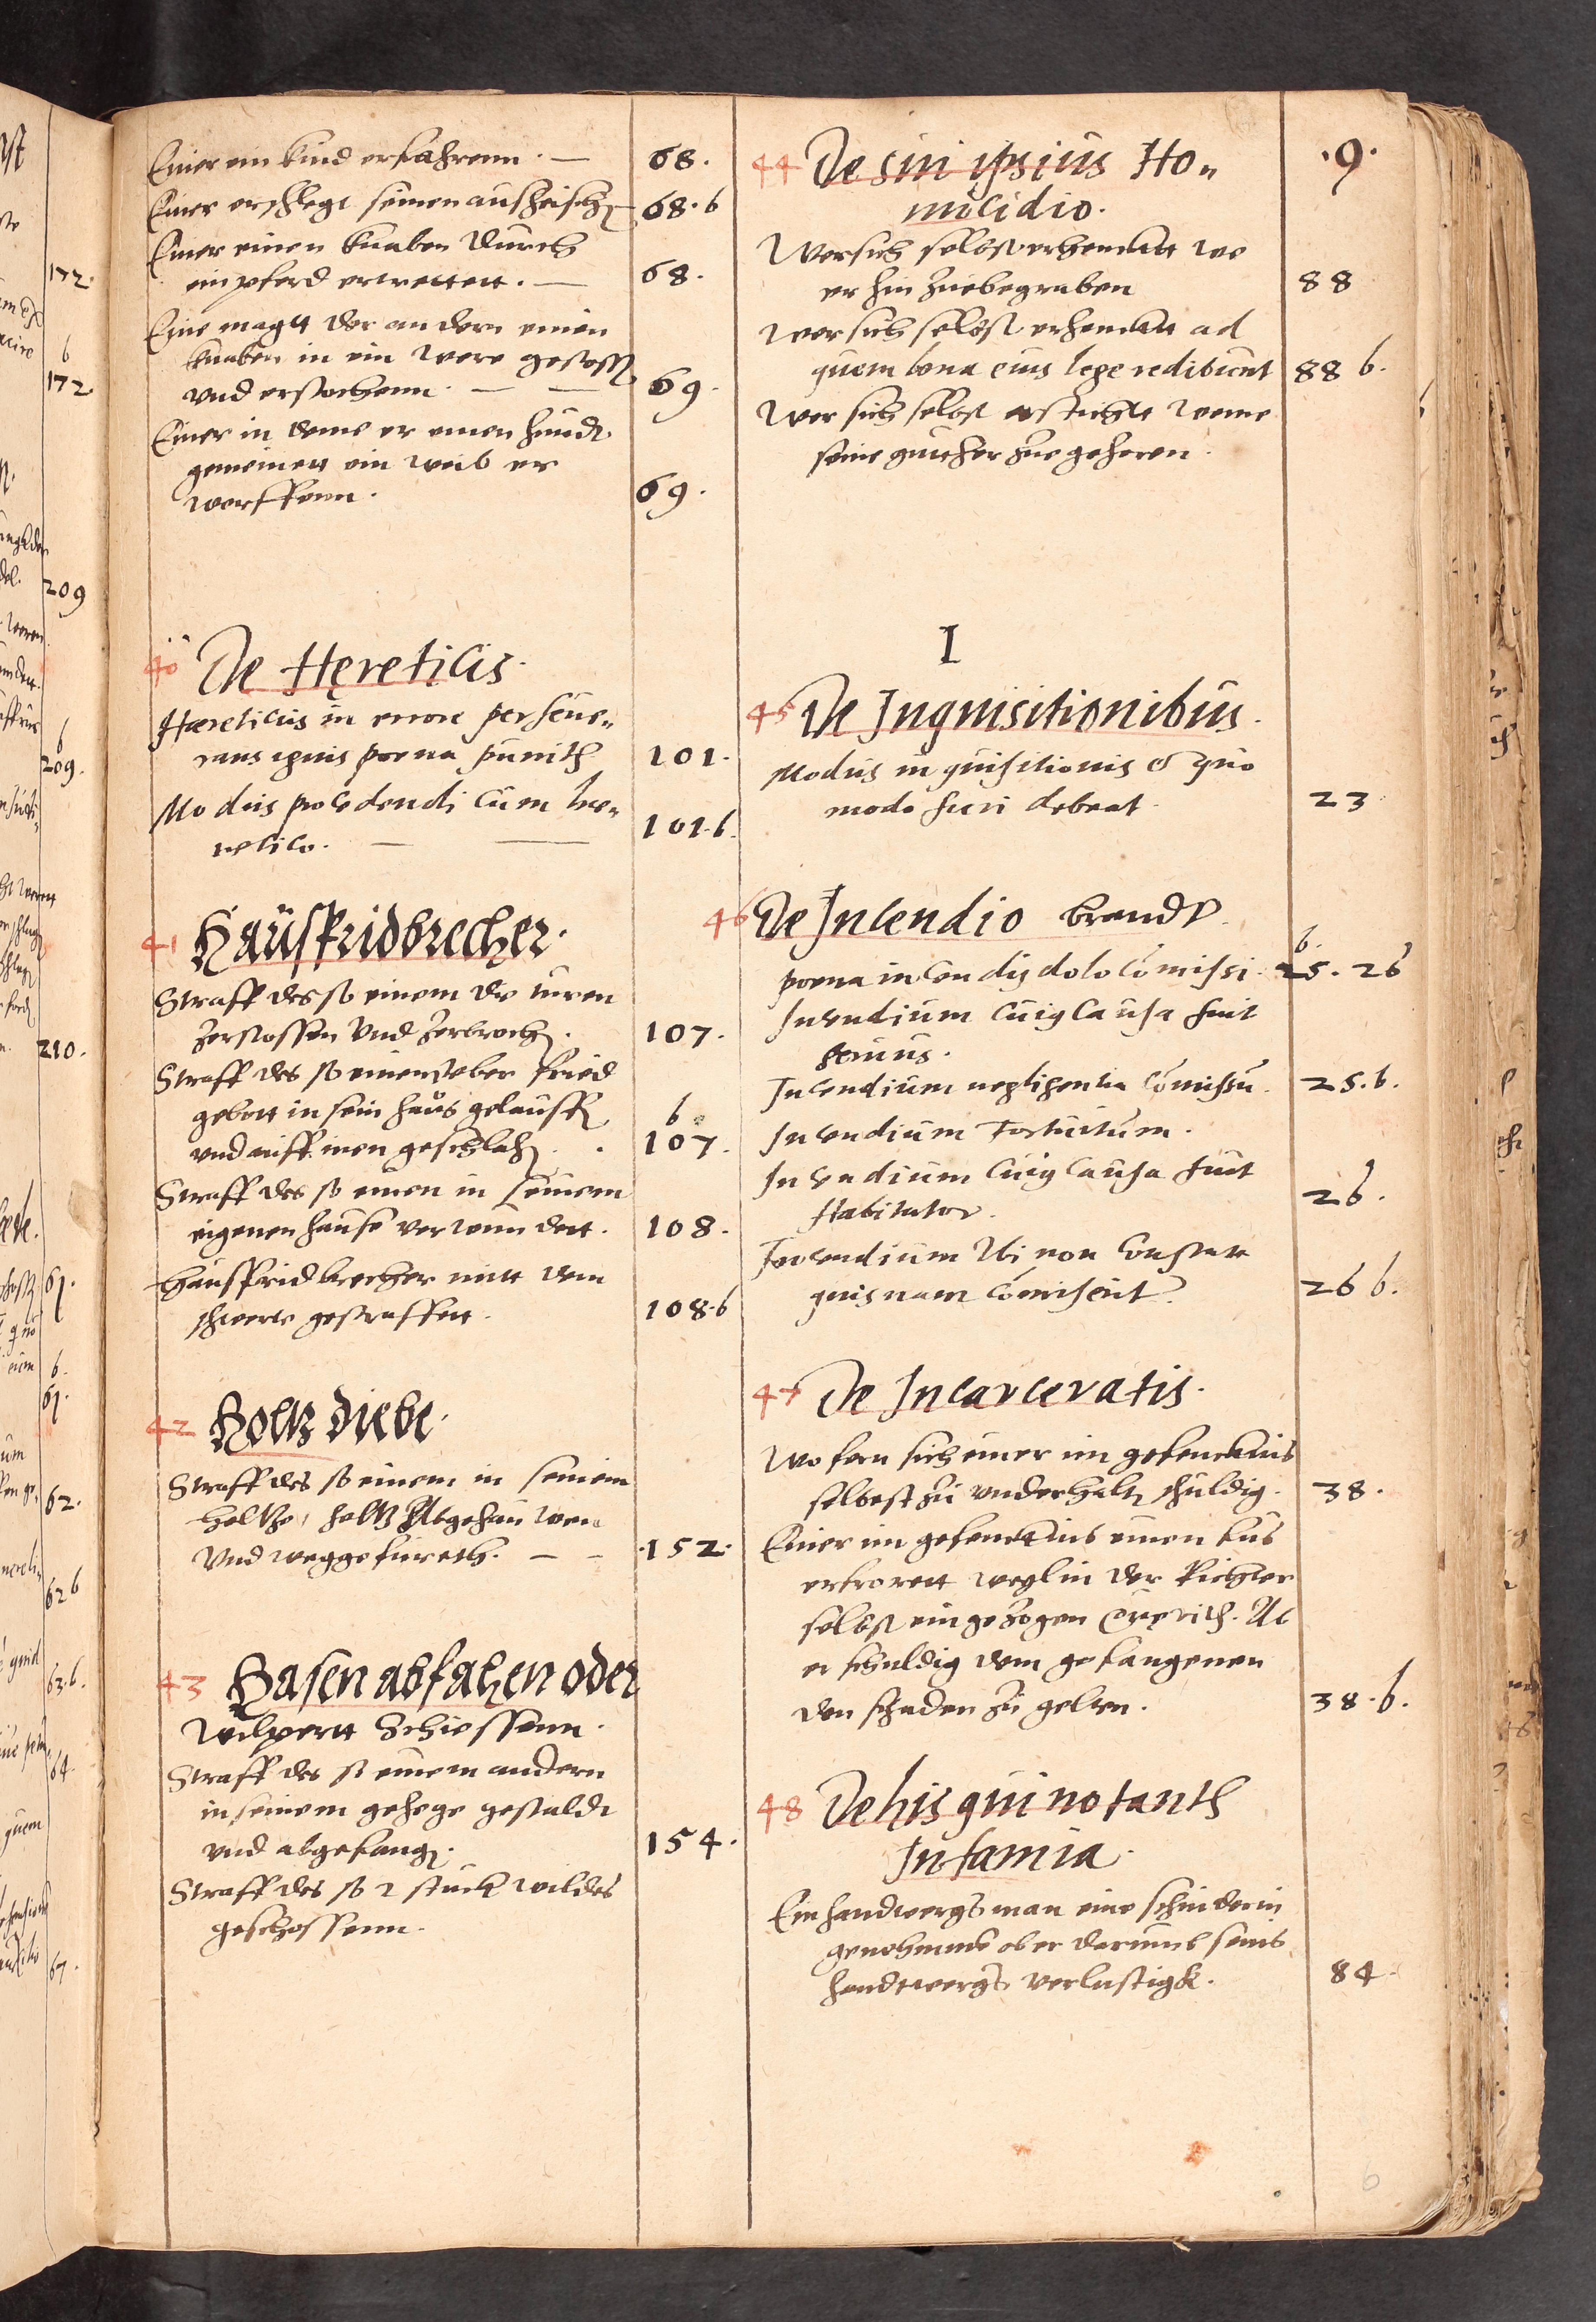 Einer ein kind erfahrenn. — 68.
Einer erschlegt seinen
68. b
Einer einen knaben durch
ein pferd ertrettett. — 68.
Eine magtt der andern einen
knaben in ein were gestossen
und erstochenn. — — 69.
Einer in deme er einen hundt
gemeinett ein weib er
worffenn. 69.
40 De Hęreticis.
Haereticus in errore perseue„
rans ignis poena punitur 101.
Modus procedendi cum hæ„
retico. — — 101. b.
41 Hausfridbrecher.
Straff des so einem die turen
zerstossen und zerbrochen. 107.
Straff des so einem vber fried
gebott in sein haus gelauffen
und auff inen geschlahen. b 107.
Straff des so einen in seinem
eigenen hause verwundett. 108.
Hausfridbrecher mitt dem
schwerte gestraffett. 108. b
42 Holtz diebe.
Straff des so einem in seinem
holtze, holtz Abgehauwen
Und weggefureth. — — .152.
43 Hasen abfahen oder
wilpertt Schiessenn.
Straff des so einem andern
in seinem gehege gestaldt
und abgefangen. 154.
Straff des so 2 stuck wildes
geschossenn.
.9.
44 De sui ipsius Ho„
micidio.
Wer sich selbst erhencktt wo
er hin zuebegraben 88
Wer sich selbst erhencktt ad
quem bona eius lege redibunt 88 b.
Wer sich selbst erstichtt weme
seine guether zue gehoren.
I
45 De Inquisitionibus.
Modus inquisitionis et quo
modo fieri debeat. 23
46 De Incendio brandt.
poena incendij dolo comissi. b. 25. 26
Incendium cuius causa fuit
seruus.
Incendium negligentia comissu. 25. b.
Incendium Fortuitum.
Incendium cuius causa fuit
Habitator. 26.
Incendium Ubi non constatt
quisnam comiserit? 26 b.
47 De Incarceratis.
Wo fern sich einer im gefencktnis
selbest zu underhalten schuldig. 38.
Einer im gefencktnis einen fus
erfrorett weglin der Richter
selbst eingezogen Ac
er schuldig dem gefangenen
den schaden zu gelten. 38. b.
48 De his qui notantur
Infamia.
Ein handwergs man eine schinderin
genohmme ob er darumb seins
handtwergs verlustigk. 84.
6
172.
b
172.
209
b
209.
210.
61.
b.
61.
62.
62 b
63. b.
64.
67.
quem